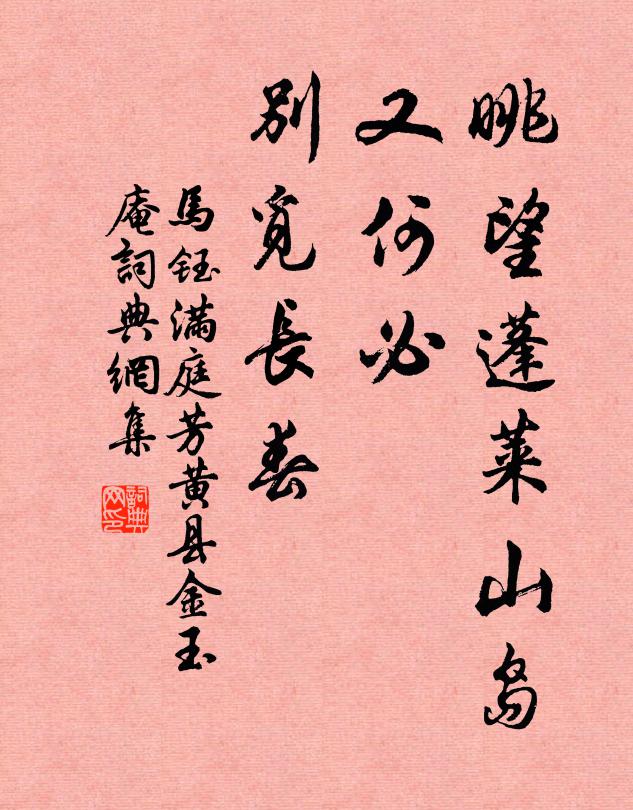 眺望蓬莱山岛
又何必
别觅長春
馬鈺满庭芳黄县金玉
庵詞典網集
詞典网印